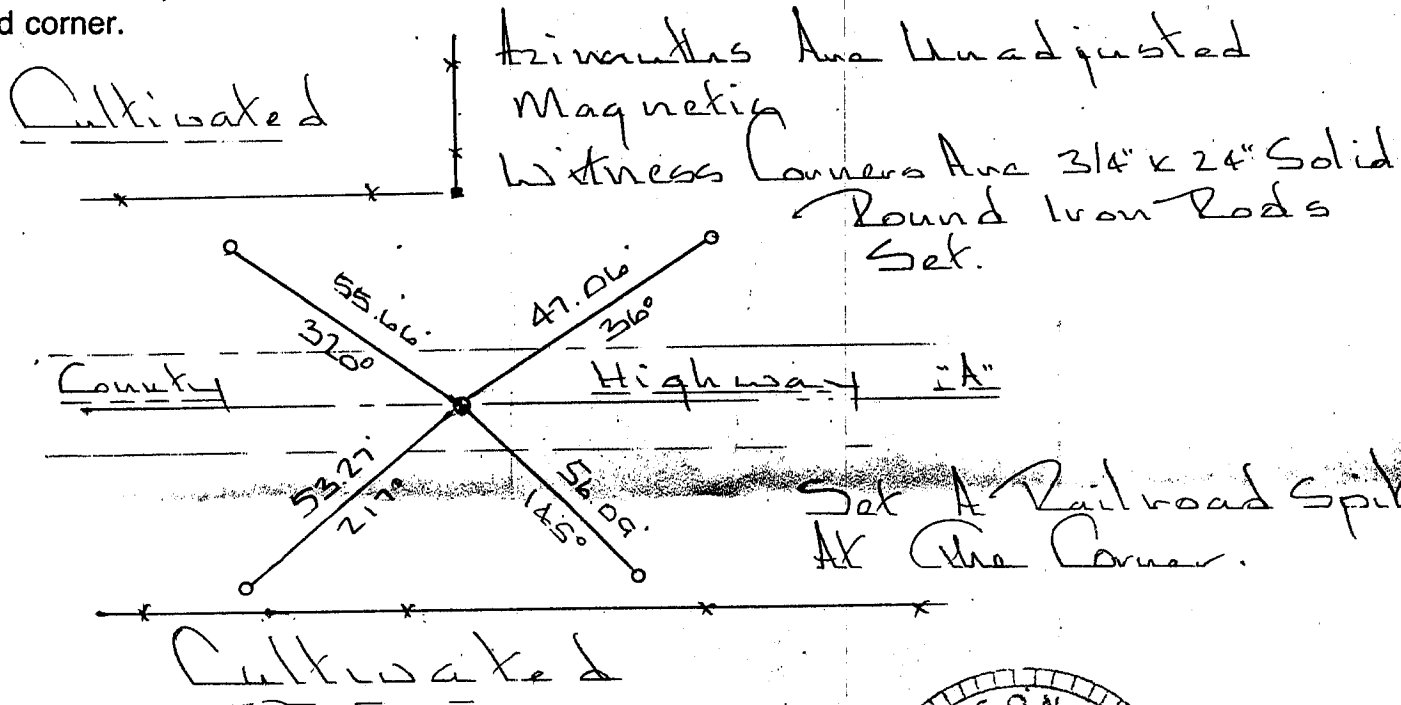 d corner.
Azimuths Are Unadjusted
Magnetic
Cultivated
Witness Corners Are 3/4" x 24" Solid
Round Iron Rods
Set.
55.66'
320°
47.06'
36°
County Highway "A"
53.27'
217°
56.09'
145°
Set A Railroad Spik
At The Corner.
Cultivated